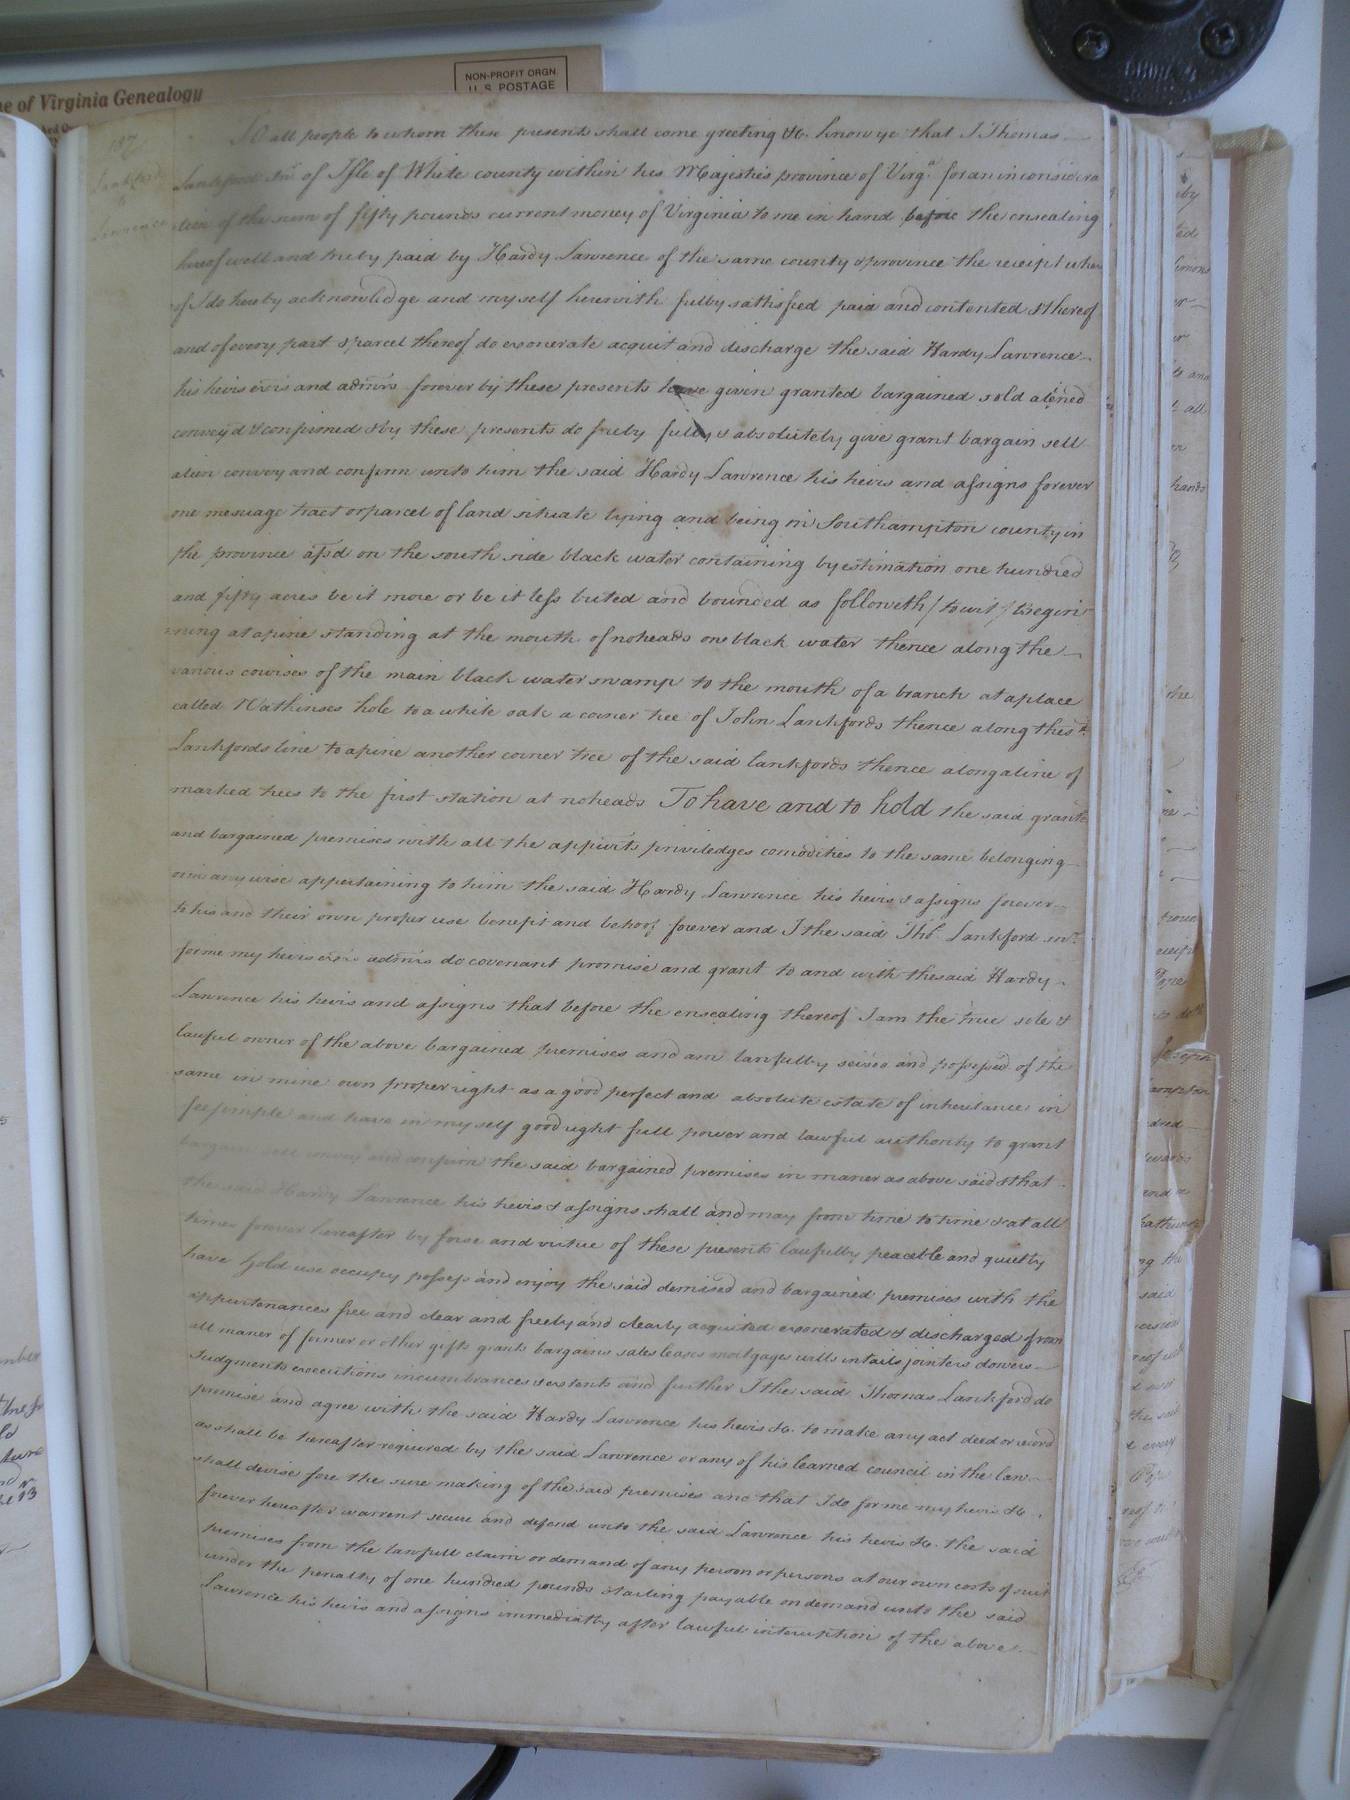 e of Virginia Genealogy
NON-PROFIT ORGN.
U. S. POSTAGE
187
Lankford
to
Lawrence
To all people to whom these presents shall come greeting &c. know ye that I Thomas
Lankford Snr. of Isle of White county within his Majesties province of Virga. for an in considera
tion of the sum of fifty pounds current money of Virginia to me in hand before the ensealing
hereof well and truly paid by Hardy Lawrence of the same county & province the receipt wher
of I do hereby acknowlidge and myself herewith fully sattisfied paid and contented & thereof
and of every part & parcel thereof do exonerate acquit and discharge the said Hardy Lawrence
his heirs exrs and admrs forever by these presents have given granted bargained sold aliened
convey'd & confirmed & by these presents do freely fully & absolutely give grant bargain sell
alien convey and confirm unto him the said Hardy Lawrence his heirs and assigns forever
one mesuage tract or parcel of land situate lying and being in Southampton county in
the province afsd on the south side black water containing by estimation one hundred
and fifty acres be it more or be it less buted and bounded as followeth / to wit / Begin
ning at a pine standing at the mouth of noheads one black water thence along the
various courses of the main black water swamp to the mouth of a branch at a place
called Wathinses hole to a white oak a corner tree of John Lankfords thence along the sd.
Lankfords line to a pine another corner tree of the said lankfords thence along a line of
marked trees to the first station at noheads To have and to hold the said grante
and bargained premises with all the appurts priviledges comodities to the same belonging
or in any wise appertaining to him the said Hardy Lawrence his heirs & assigns forever
to his and their own proper use benefit and behoof forever and I the said Tho. Lankford snr.
for me my heirs exrs admrs do covenant promise and grant to and with the said Hardy
Lawrence his heirs and assigns that before the ensealing thereof I am the true sole &
lawful owner of the above bargained premises and am lawfully seised and possessed of the
same in mine own proper right as a good perfect and absolute estate of inheritance in
fee simple and have in myself good right full power and lawful authority to grant
bargain sell convey and confirm the said bargained premises in maner as above said & that
the said Hardy Lawrence his heirs & assigns shall and may from time to time & at all
times forever hereafter by force and virtue of these presents lawfully peaceble and quietly
have hold use occupy possess and enjoy the said demised and bargained premises with the
appurtenances free and clear and freely and clearly acquited exonerated & discharged from
all maner of former or other gifts grants bargains sales leases mortgages wills intails jointers dowers
Judgments executions incumbrances & extents and further I the said Thomas Lankford do
promise and agree with the said Hardy Lawrence his heirs &c. to make any act deed or word
as shall be hereafter required by the said Lawrence or any of his learned council in the law
shall devise fore the sure making of the said premises and that I do for me my heirs &c.
forever hereafter warrent secure and defend unto the said Lawrence his heirs &c. the said
premises from the lawfull claim or demand of any person or persons at our own costs of suit
under the penalty of one hundred pounds starling payable on demand unto the said
Lawrence his heirs and assigns immediatly after lawful interuption of the above